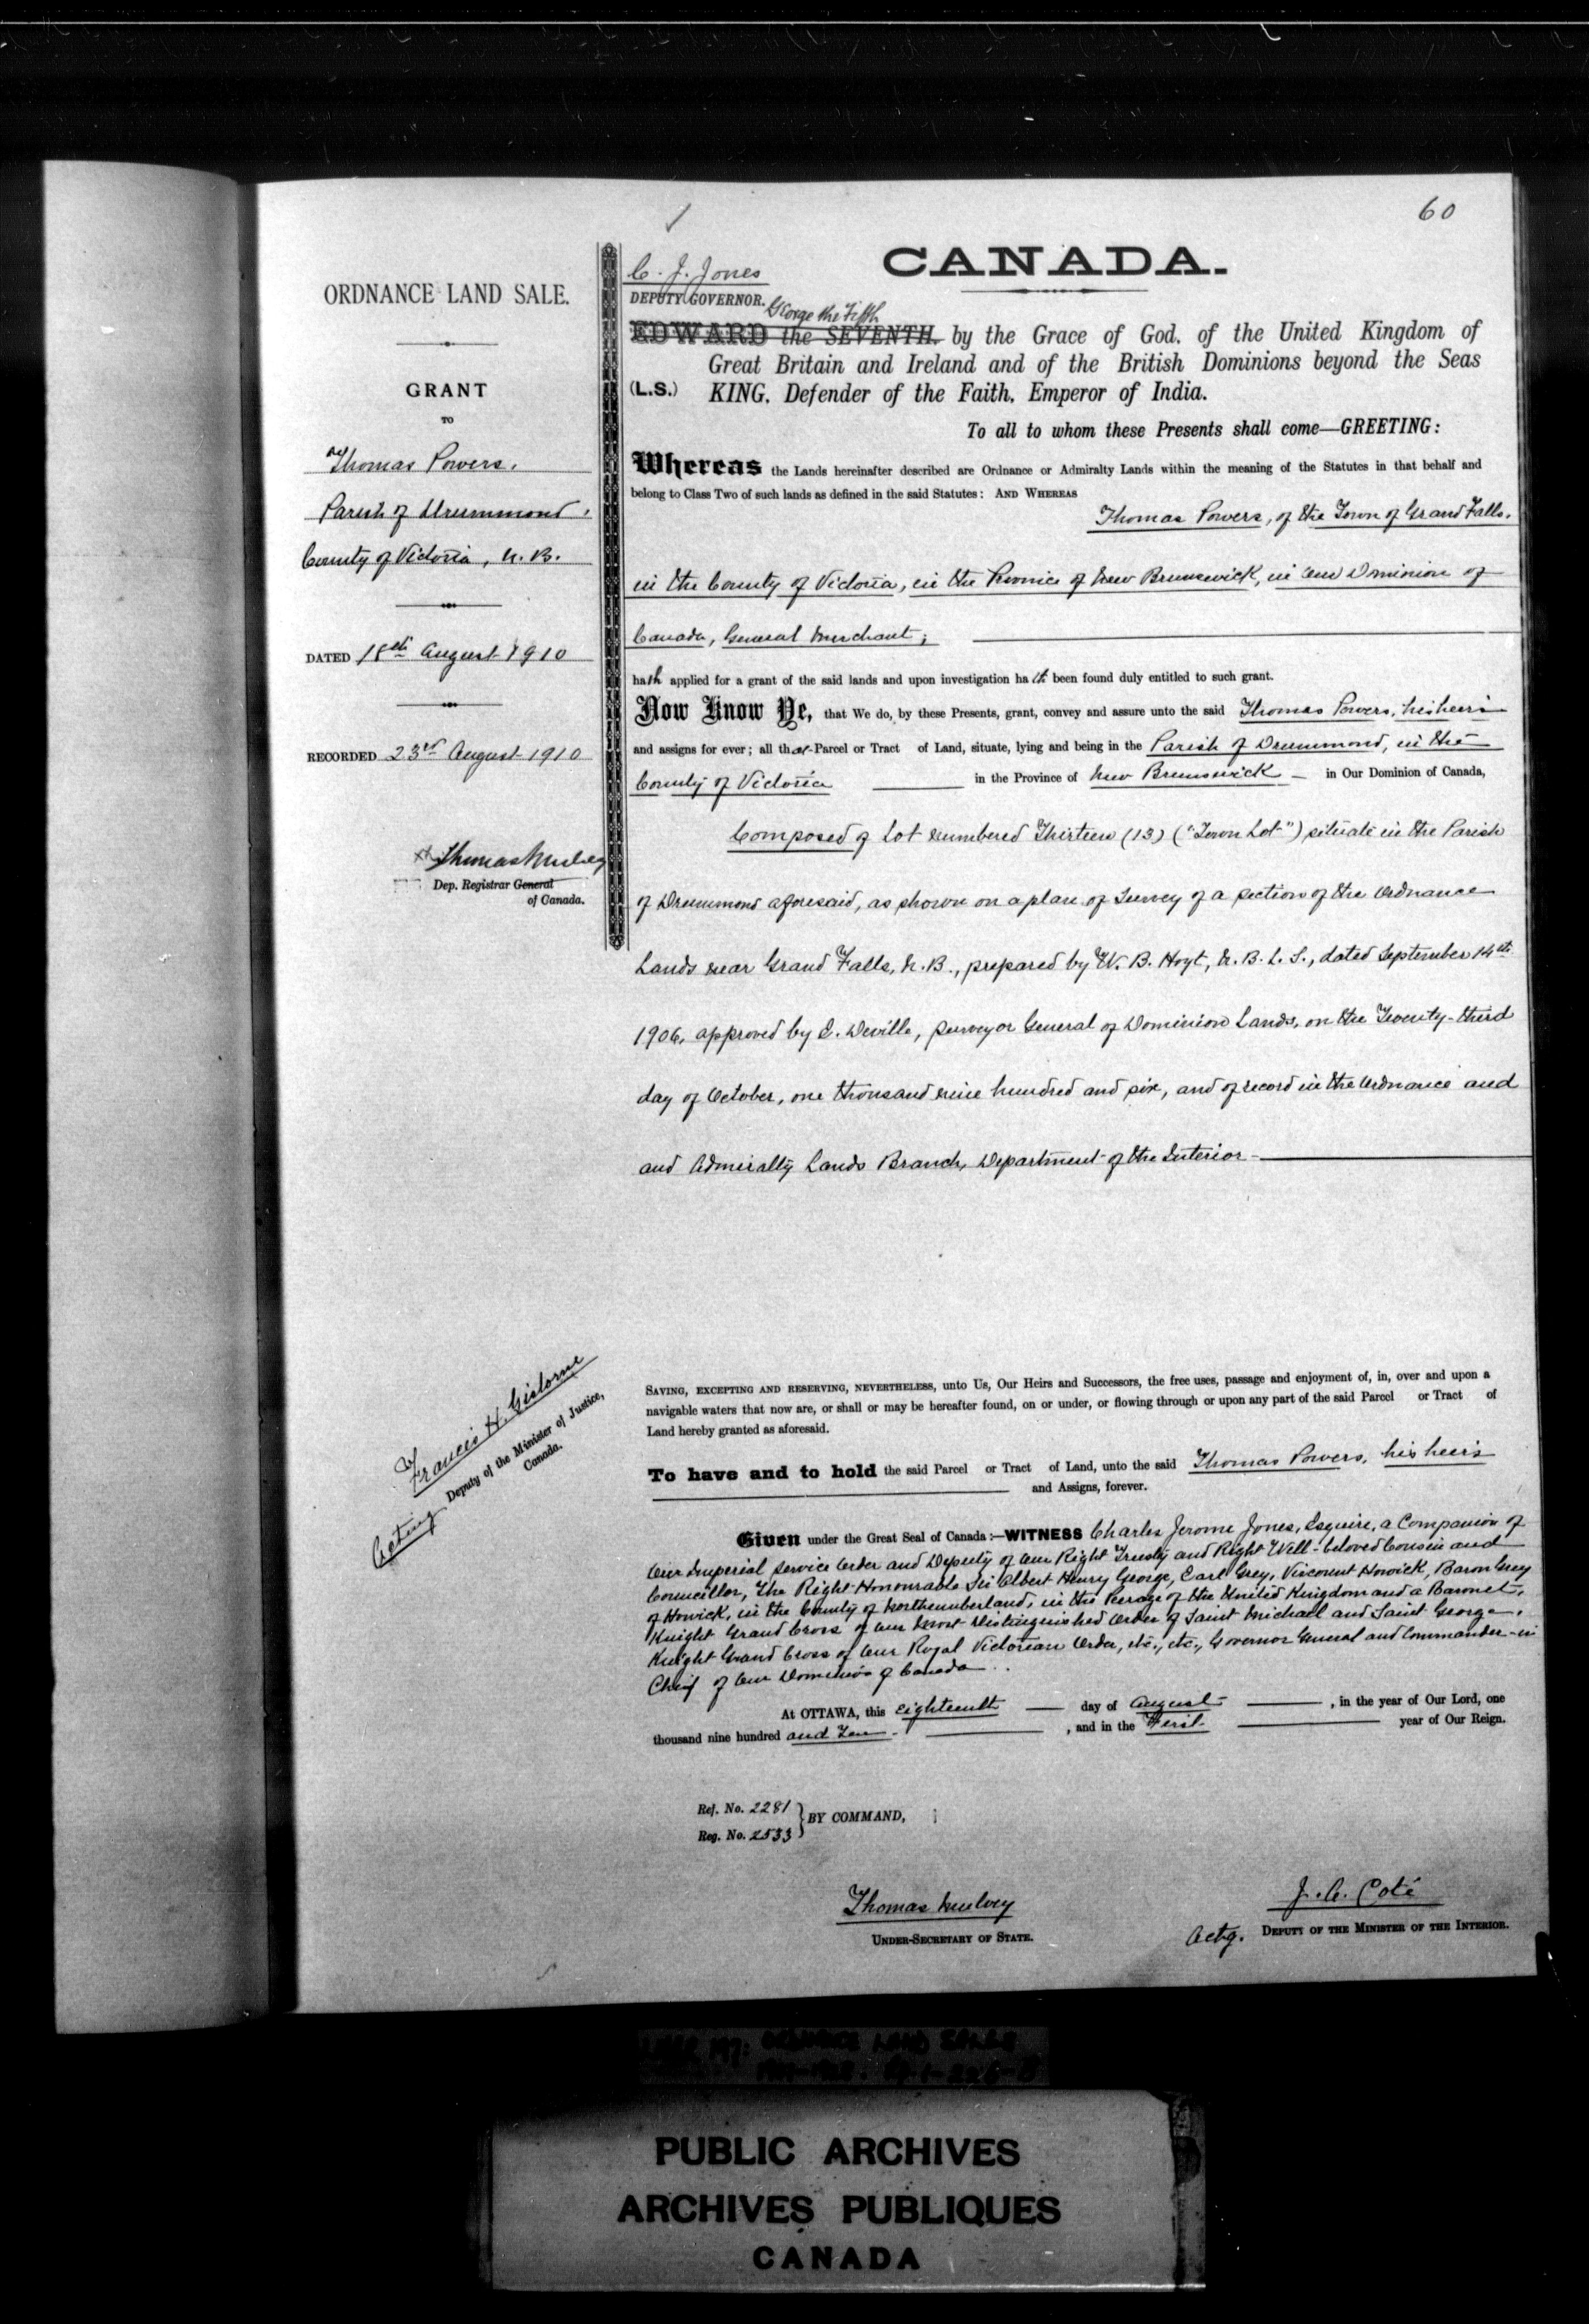 60
ORDNANCE LAND SALE.
GRANT
TO
Thomas Powers,
Parish of Drummond,
County of Victoria, N. B.
DATED 18th August 1910
RECORDED 23rd August 1910
Thomas Mulvey
Dep. Registrar General
of Canada.
Francis H. Gisborne
Acting Deputy of the Minister of Justice,
Canada.
C. J. Jones
CANADA.
DEPUTY GOVERNOR.
George the Fifth
EDWARD the SEVENTH, by the Grace of God, of the United Kingdom of
Great Britain and Ireland and of the British Dominions beyond the Seas
(L.S.) KING, Defender of the Faith, Emperor of India.
To all to whom these Presents shall come—GREETING:
Whereas the Lands hereinafter described are Ordnance or Admiralty Lands within the meaning of the Statutes in that behalf and
belong to Class Two of such lands as defined in the said Statutes: AND WHEREAS
Thomas Powers, of the Town of Grand Falls,
in the County of Victoria, in the Province of New Brunswick, in Our Dominion of
Canada, General Merchant;
hath applied for a grant of the said lands and upon investigation hath been found duly entitled to such grant.
Now Know Ye, that We do, by these Presents, grant, convey and assure unto the said Thomas Powers, his heirs
and assigns for ever; all that Parcel or Tract of Land, situate, lying and being in the Parish of Drummond, in the
County of Victoria in the Province of New Brunswick in Our Dominion of Canada,
Composed of Lot numbered Thirteen (13) ("Town Lot") situate in the Parish
of Drummond aforesaid, as shown on a plan of Survey of a section of the Ordnance
Lands near Grand Falls, N. B., prepared by W. B. Hoyt, N. B. L. S., dated September 14th
1906, approved by E. Deville, Surveyor General of Dominion Lands, on the Twenty-third
day of October, one thousand nine hundred and six, and of record in the Ordnance and
and Admiralty Lands Branch, Department of the Interior
SAVING, EXCEPTING AND RESERVING, NEVERTHELESS, unto Us, Our Heirs and Successors, the free uses, passage and enjoyment of, in, over and upon a
navigable waters that now are, or shall or may be hereafter found, on or under, or flowing through or upon any part of the said Parcel or Tract of
Land hereby granted as aforesaid.
To have and to hold the said Parcel or Tract of Land, unto the said Thomas Powers, his heirs
and Assigns, forever.
Given under the Great Seal of Canada:—WITNESS Charles Jerome Jones, Esquire, a Companion of
Our Imperial Service Order and Deputy of Our Right Trusty and Right Well-beloved Cousin and
Councillor, The Right Honourable Sir Albert Henry George, Earl Grey, Viscount Howick, Baron Grey
of Howick, in the County of Northumberland, in the Peerage of the United Kingdom and a Baronet,
Knight Grand Cross of Our Most Distinguished Order of Saint Michael and Saint George,
Knight Grand Cross of Our Royal Victorian Order, etc., etc., Governor General and Commander-in
Chief of Our Dominion of Canada
At OTTAWA, this eighteenth day of August, in the year of Our Lord, one
thousand nine hundred and Ten, and in the First year of Our Reign.
Ref. No. 2281
BY COMMAND,
Reg. No. 2533
Thomas Mulvey
UNDER-SECRETARY OF STATE.
J. A. Coté
Actg. DEPUTY OF THE MINISTER OF THE INTERIOR.
PUBLIC ARCHIVES
ARCHIVES PUBLIQUES
CANADA